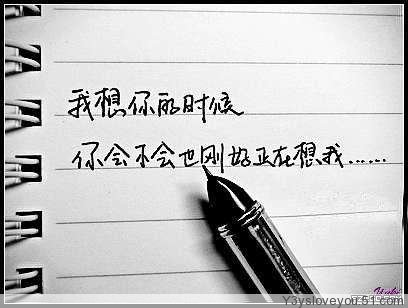 我想你的时候
你会不会也刚好正在想我......
Y3ysloveyou.51.com